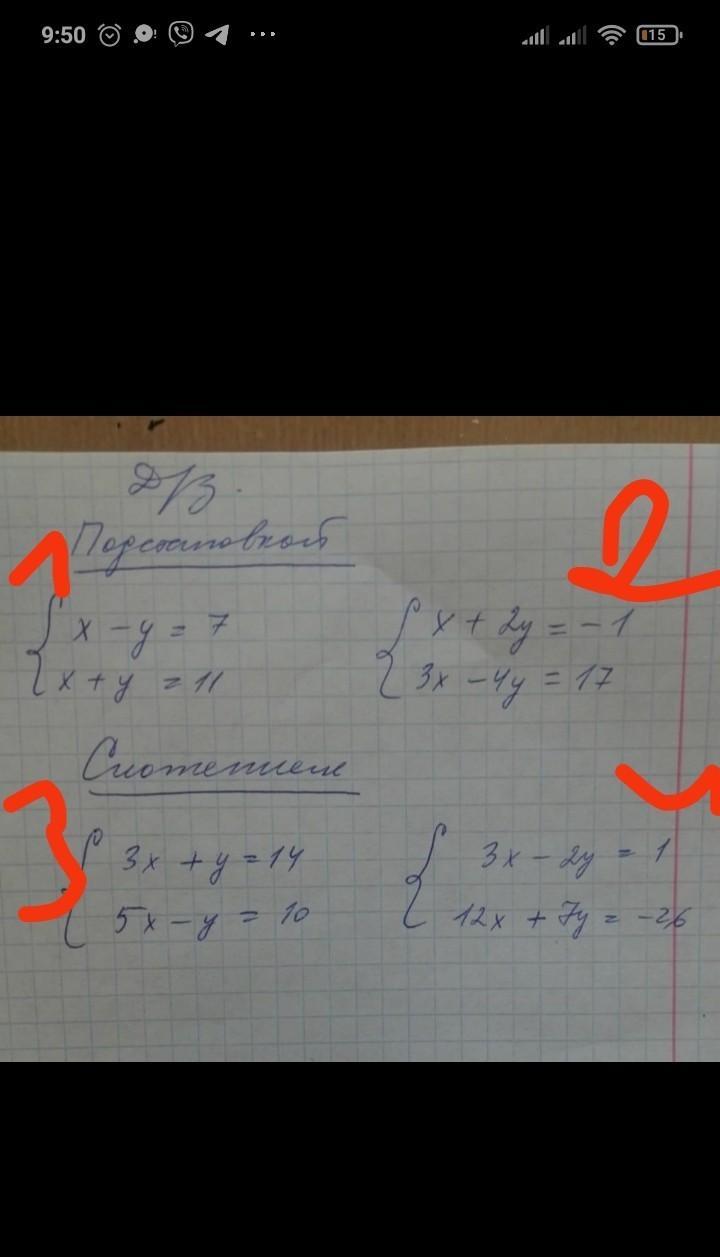 9:50 15
Д/З.
1 Подстановкой 2
{ x - y = 7
x + y = 11
{ x + 2y = -1
3x - 4y = 17
Сложением
3 { 3x + y = 14
5x - y = 10
{ 3x - 2y = 1
12x + 7y = -26